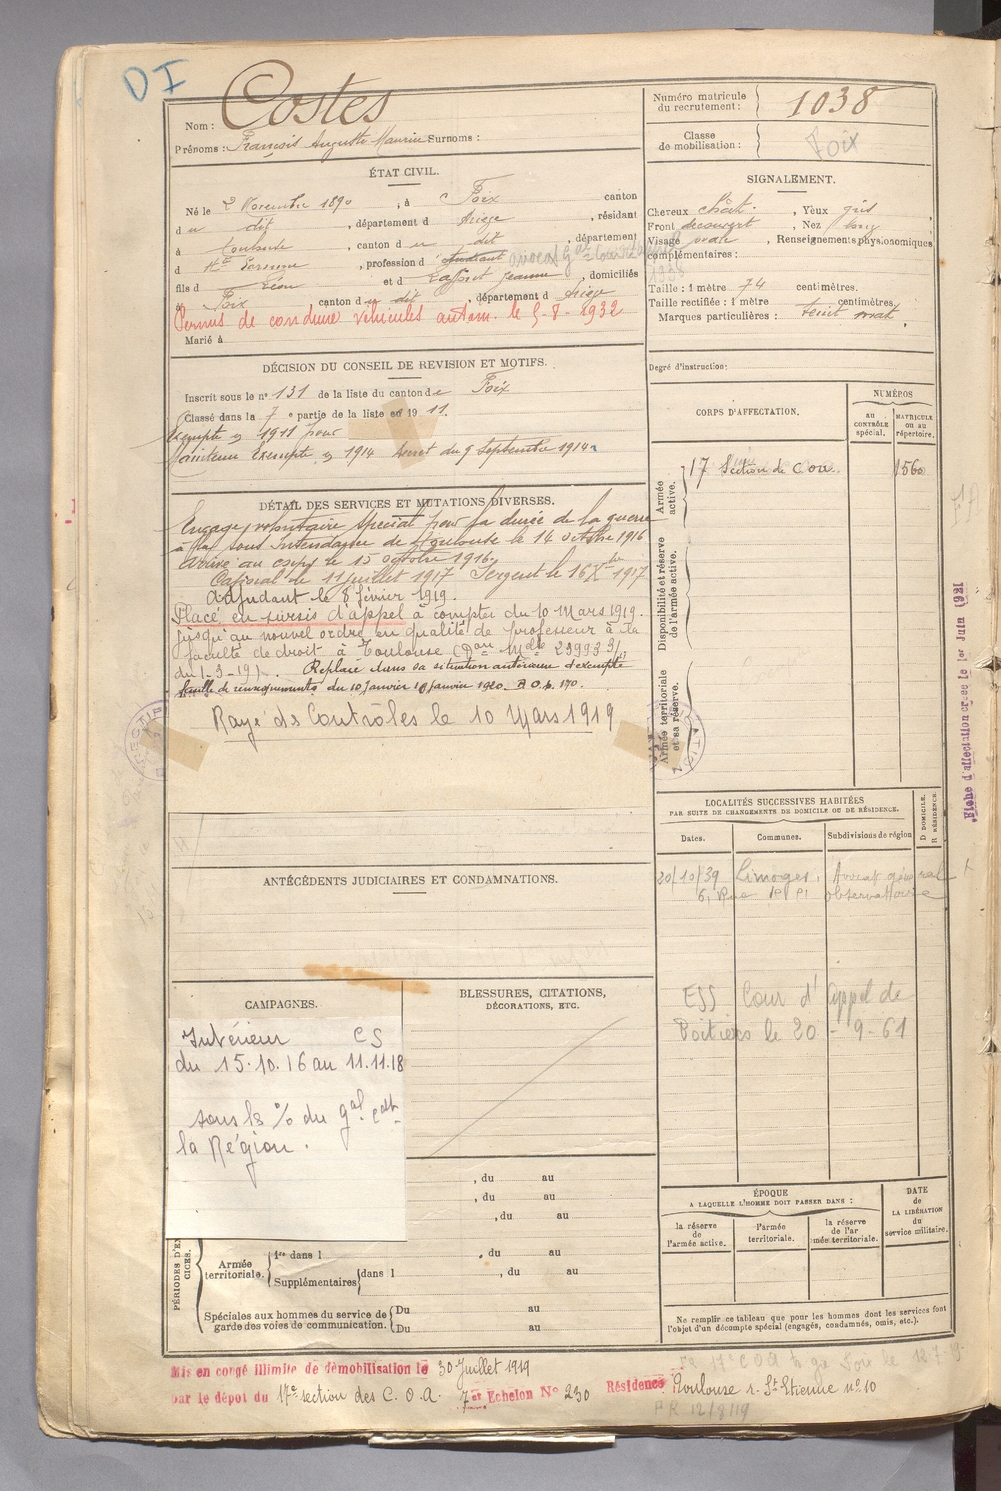 DI
Nom : Costes
Prénoms : François Auguste Maurice Surnoms :
Numéro matricule
du recrutement : 1038
Classe
de mobilisation : Foix
ÉTAT CIVIL.
Né le 2 Novembre 1890, à Foix canton
du dit, département d Ariège, résidant
à Toulouse, canton du dit, département
d Hte Garonne, profession d'étudiant avocat gal
fils d Léon et d Laffont Jeanne, domiciliés
à Foix canton du dit, département d Ariège
Permis de conduire véhicules autom. le 5-8-1932
Marié à
SIGNALEMENT.
Cheveux chât., Yeux gris,
Front découvert, Nez long
Visage ovale, Renseignements physionomiques
complémentaires :
1938
Taille : 1 mètre 74 centimètres.
Taille rectifiée : 1 mètre centimètres.
Marques particulières : teint mat,
Degré d'instruction :
DÉCISION DU CONSEIL DE REVISION ET MOTIFS.
Inscrit sous le n° 131 de la liste du canton de Foix
Classé dans la 7e partie de la liste en 1911.
Exempté en 1911 pour
Maintenu Exempté en 1914 Décret du 9 Septembre 1914
CORPS D'AFFECTATION.
NUMÉROS
au
CONTRÔLE
spécial.
MATRICULE
ou au
répertoire.
Armée
active.
17 Section de C.O.A. 1560
Disponibilité et réserve
de l'armée active.
Armée territoriale
et sa réserve.
DÉTAIL DES SERVICES ET MUTATIONS DIVERSES.
Engagé volontaire spécial pour la durée de la guerre
à la sous Intendance de Toulouse le 14 octobre 1916
Arrivé au corps le 15 octobre 1916.
Caporal le 11 juillet 1917 Sergent le 16 Xbre 1917
adjudant le 8 février 1919.
Placé en sursis d'appel à compter du 10 Mars 1919.
jusqu'au nouvel ordre en qualité de professeur à la
faculté de droit à Toulouse (Don Mlle 23993 3/
du 1-3-19). Replacé dans sa situation antérieure d'exempté
feuille de renseignements du 10 Janvier 1920.
Rayé des Contrôles le 10 Mars 1919
Fiche d'affectation créée le 1er Juin 1921
LOCALITÉS SUCCESSIVES HABITÉES
PAR SUITE DE CHANGEMENTS DE DOMICILE OU DE RÉSIDENCE.
Dates. Communes. Subdivisions de région
D DOMICILE.
R RÉSIDENCE.
20/10/39 Limoges, Avocat général
6, Rue observatoire
ESS Cour d'Appel de
Poitiers le 20-9-61
ANTÉCÉDENTS JUDICIAIRES ET CONDAMNATIONS.
CAMPAGNES.
Intérieur CS
du 15.10.16 au 11.11.18
sous les % du gal Cdt
la Région.
BLESSURES, CITATIONS,
DÉCORATIONS, ETC.
, du au
, du au
, du au
PÉRIODES D'EX
CICES.
Armée
territoriale.
1re dans l , du au
Supplémentaires dans l , du au
Spéciales aux hommes du service de
garde des voies de communication.
Du au
Du au
ÉPOQUE
A LAQUELLE L'HOMME DOIT PASSER DANS :
la réserve
de
l'armée active.
l'armée
territoriale.
la réserve
de l'ar
mée territoriale.
DATE
de
LA LIBÉRATION
du
service militaire.
Ne remplir ce tableau que pour les hommes dont les services font
l'objet d'un décompte spécial (engagés, condamnés, omis, etc.).
Mis en congé illimité de démobilisation le 30 Juillet 1919
par le dépôt du 17e section des C.O.A. 7e Echelon N° 230 Résidence Toulouse r. St Etienne n° 10
PR 12/8/19